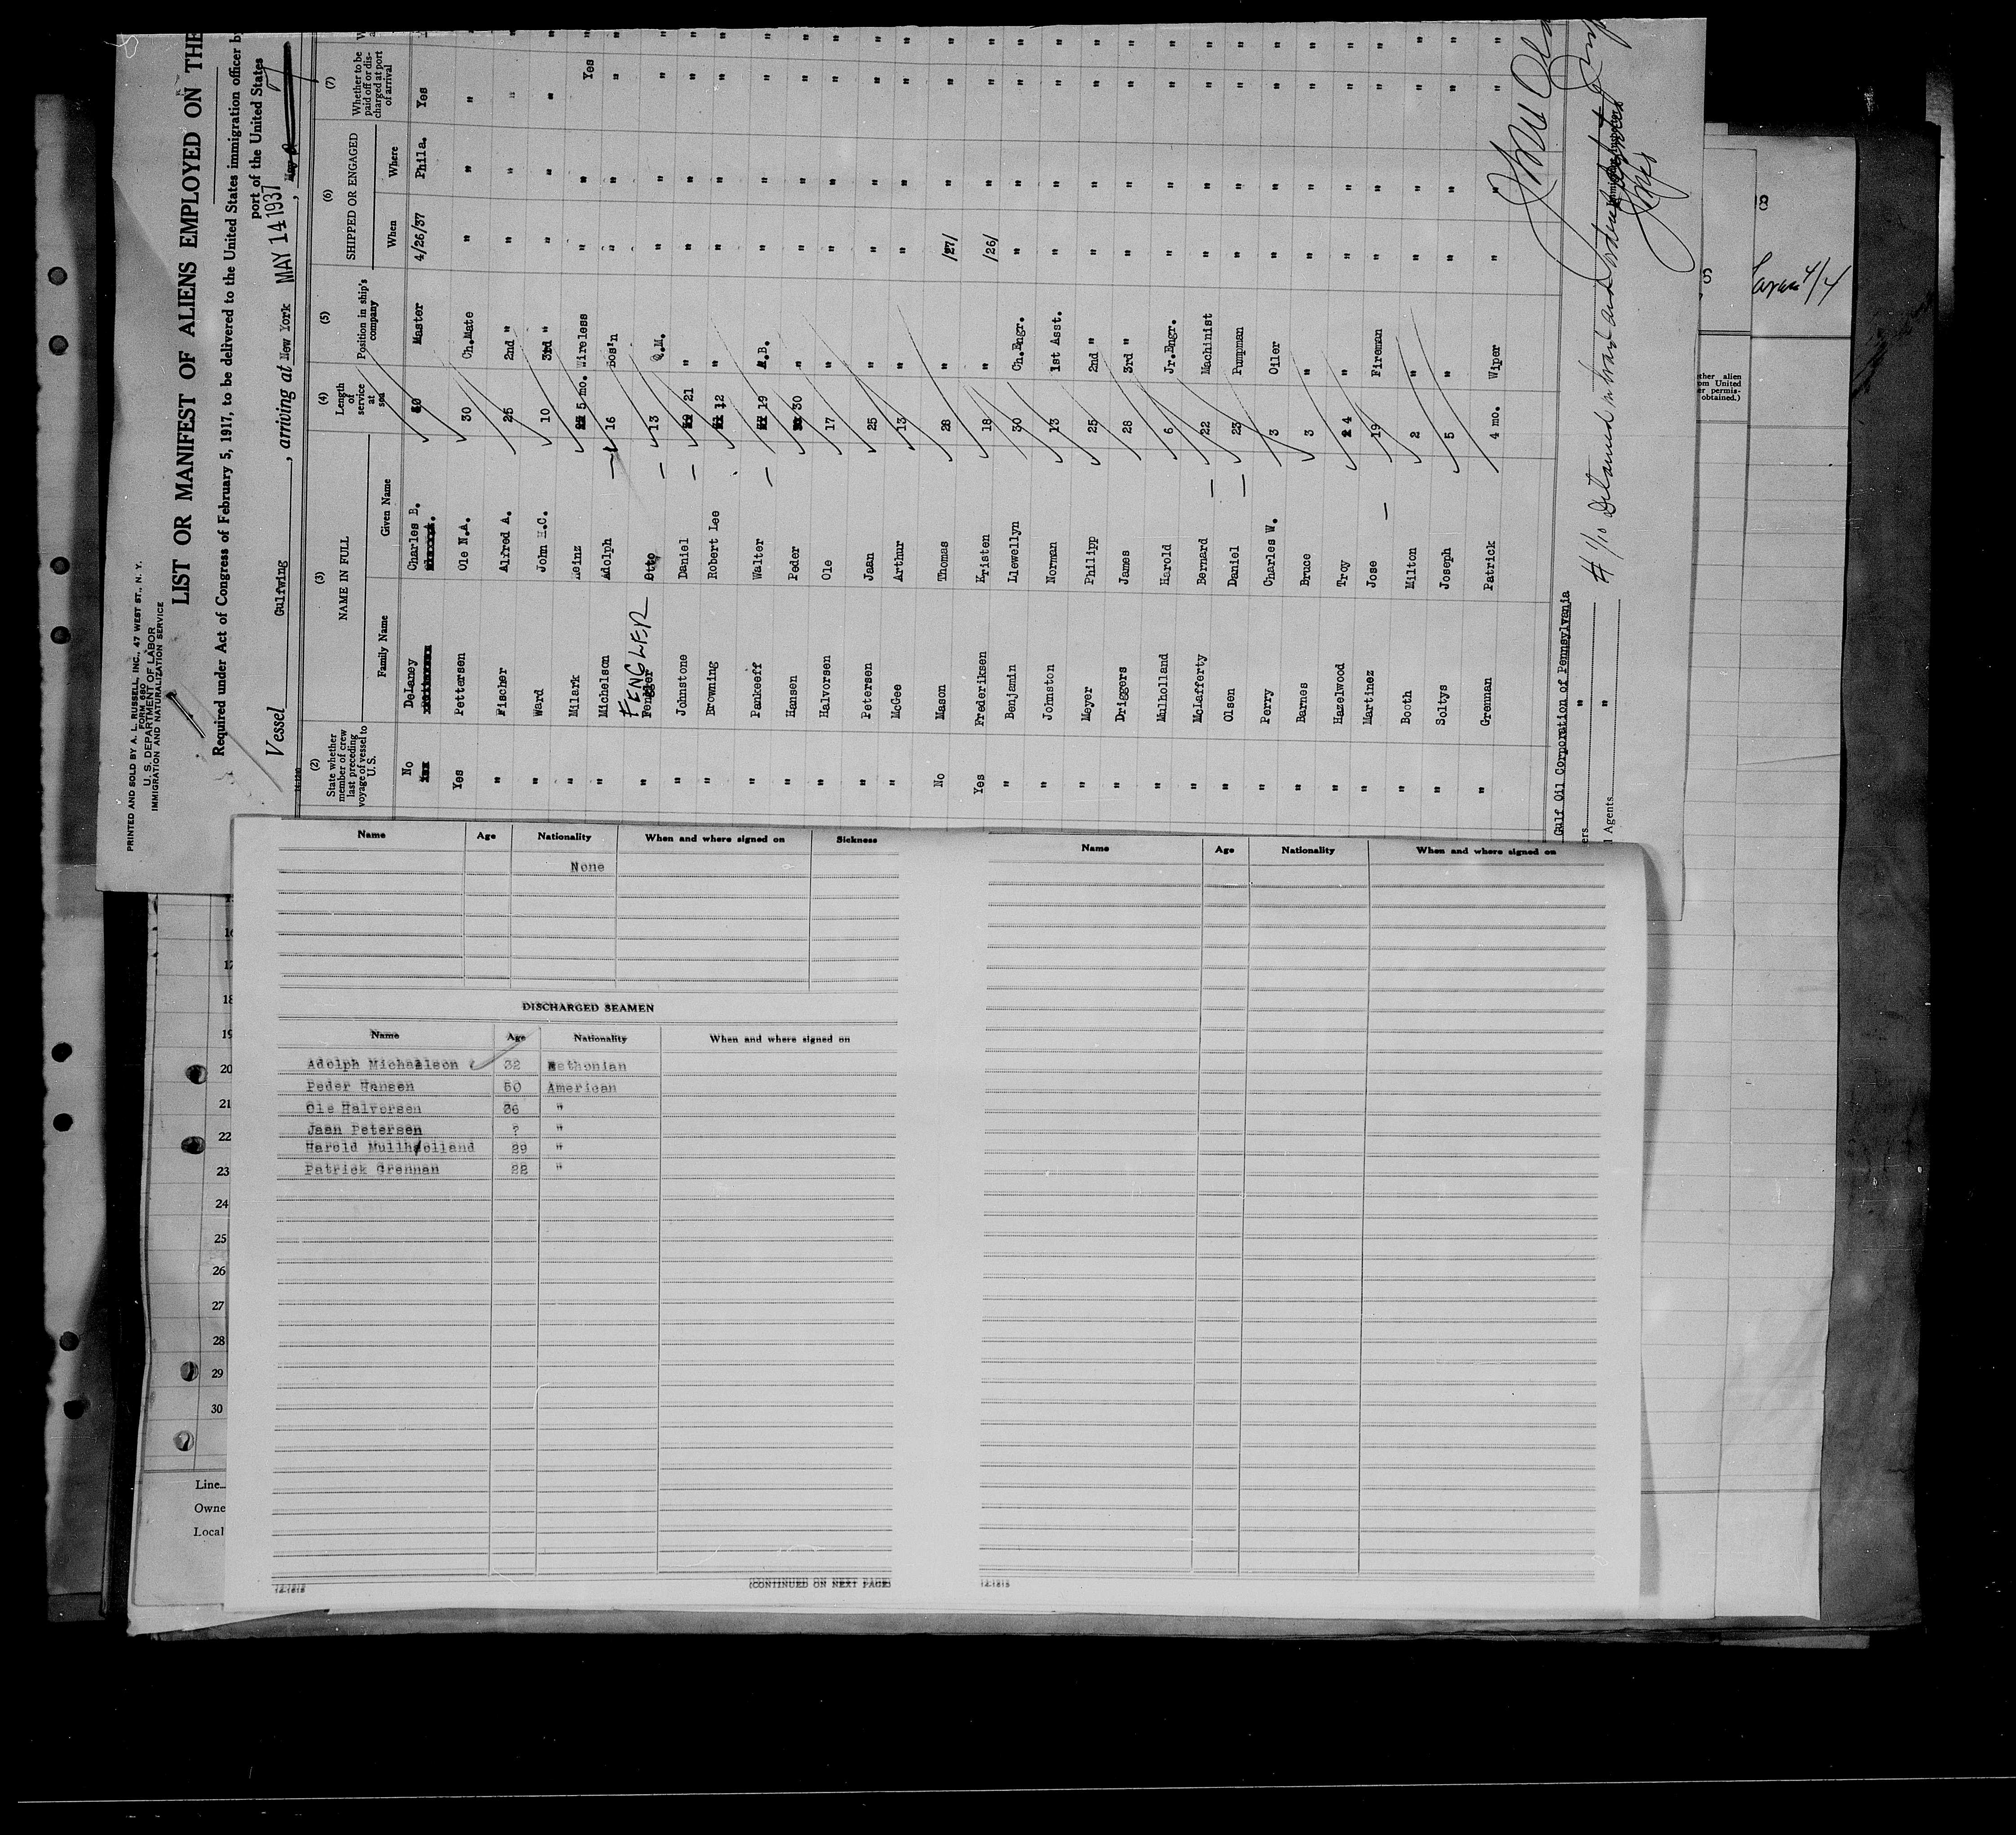 PRINTED AND SOLD BY A. L. RUSSELL, INC., 47 WEST ST., N. Y.
FORM 680
U. S. DEPARTMENT OF LABOR
IMMIGRATION AND NATURALIZATION SERVICE
LIST OR MANIFEST OF ALIENS EMPLOYED ON THE
Required under Act of Congress of February 5, 1917, to be delivered to the United States immigration officer by
port of the United States
Vessel Gulfwing, arriving at New York MAY 14 1937,
(2) (3) (4) (5) (6) (7)
State whether member of crew last preceding voyage of vessel to U.S.
NAME IN FULL
Family Name Given Name
Length of service at sea
Position in ship's company
SHIPPED OR ENGAGED
When Where
Whether to be paid off or discharged at port of arrival
No DeLaney Charles B. 30 Master 4/26/37 Phila. Yes
Yes Pettersen Ole N.A. 30 Ch.Mate " " " "
" Fischer Alfred A. 25 2nd " " " " "
" Ward John H.C. 10 3rd " " " " "
" Milark Heinz 5 mo. Wireless " " Yes "
" Michelson Adolph 16 Bos'n " " " "
" FENGLER Fengler Otto 13 Q.M. " " " "
" Johnstone Daniel 21 " " " " "
" Browning Robert Lee 12 " " " " "
" Pankeeff Walter 19 A.B. " " " "
" Hansen Peder 30 " " " " "
" Halvorsen Ole 17 " " " " "
" Petersen Jaan 25 " " " " "
" McGee Arthur 13 " " " " "
No Mason Thomas 28 " /27/ " " "
Yes Frederiksen Kristen 18 " /26/ " " "
" Benjamin Llewellyn 30 Ch.Engr. " " " "
" Johnston Norman 13 1st Asst. " " " "
" Meyer Philipp 25 2nd " " " " "
" Driggers James 28 3rd " " " " "
" Mulholland Harold 6 Jr.Engr. " " " "
" McLafferty Bernard 22 Machinist " " " "
" Olsen Daniel 23 Pumpman " " " "
" Perry Charles W. 3 Oiler " " " "
" Barnes Bruce 3 " " " " "
" Hazelwood Troy 4 " " " " "
" Martinez Jose 19 Fireman " " " "
" Booth Milton 2 " " " " "
" Soltys Joseph 5 " " " " "
" Grennan Patrick 4 mo. Wiper " " " "
Gulf Oil Corporation of Pennsylvania
ers "
l Agents "
ther alien
om United
er permis-
obtained.)
8
S
Name Age Nationality When and where signed on Sickness
None
DISCHARGED SEAMEN
Name Age Nationality When and where signed on
Adolph Michaelson 32 Esthonian
Peder Hansen 50 American
Ole Halvorsen 36 "
Jaan Petersen ? "
Harold Mullholland 29 "
Patrick Grennan 22 "
12-1818
(CONTINUED ON NEXT PAGE)
Name Age Nationality When and where signed on
12-1818
16
17
18
19
20
21
22
23
24
25
26
27
28
29
30
Line
Owne
Local